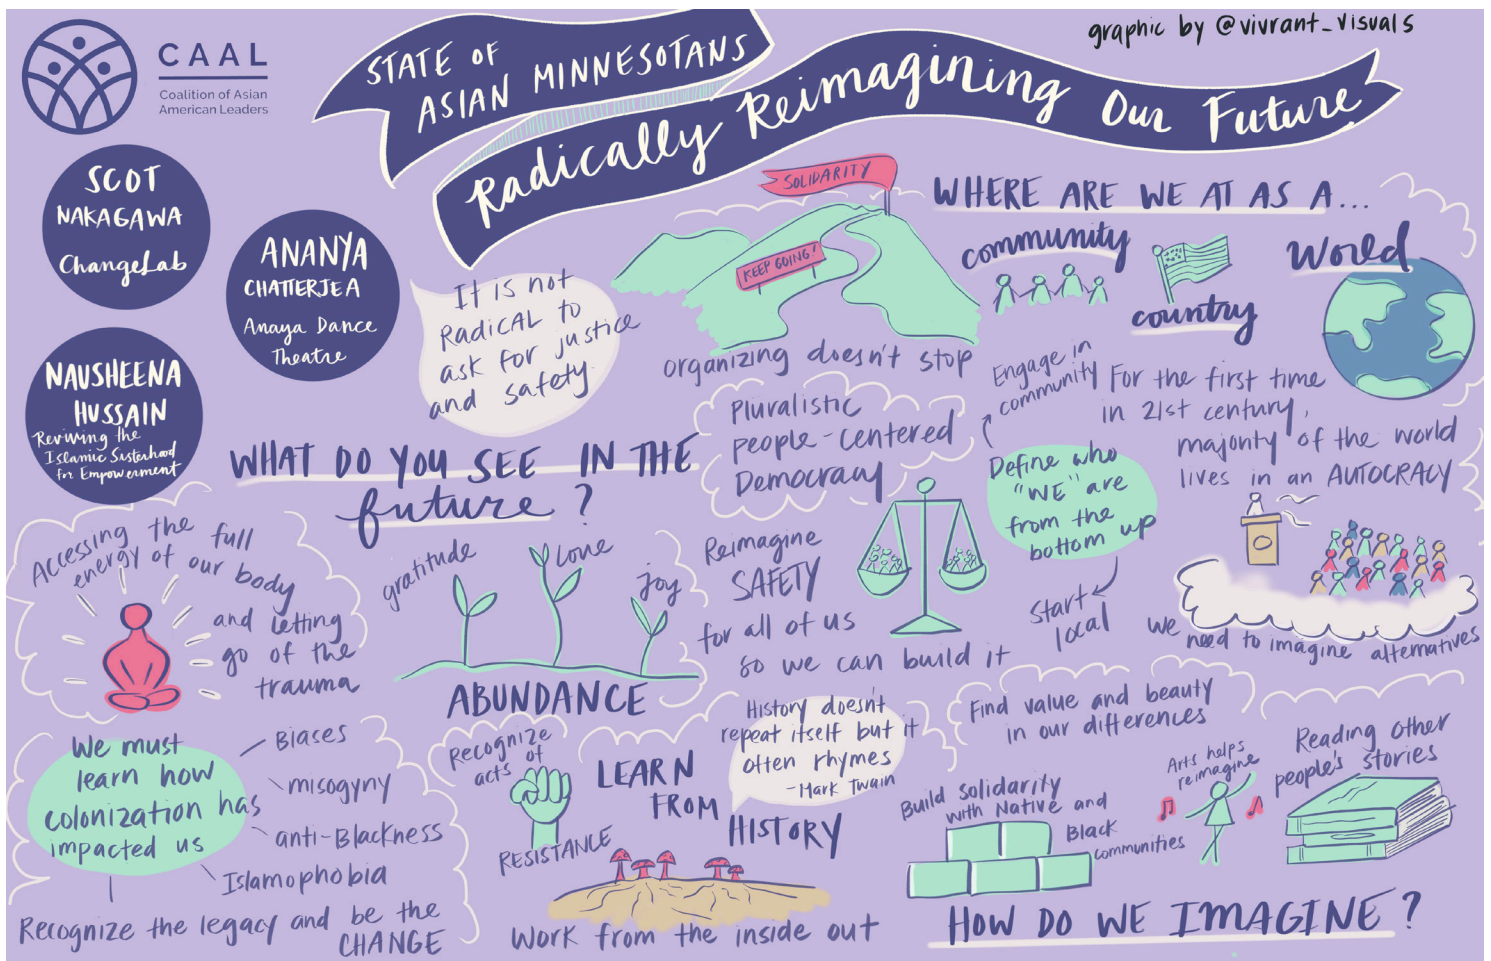 CAAL
Coalition of Asian
American Leaders
STATE OF
ASIAN MINNESOTANS
Radically Reimagining Our Future
graphic by @vivrant_visuals
SCOT
NAKAGAWA
ChangeLab
ANANYA
CHATTERJEA
Anaya Dance
Theatre
NAUSHEENA
HUSSAIN
Reviving the
Islamic Sisterhood
for Empowerment
It is not
RADICAL to
ask for justice
and safety.
SOLIDARITY
KEEP GOING!
organizing doesn't stop
WHERE ARE WE AT AS A...
community
country
World
Engage in
community
Define who
"WE" are
from the
bottom up
Start
local
For the first time
in 21st century,
majonty of the world
lives in an AUTOCRACY
we need to imagine alternatives
WHAT DO YOU SEE IN THE
future?
Pluralistic
people-centered
Democracy
Reimagine
SAFETY
for all of us
so we can build it
Accessing the full
energy of our body
and letting
go of the
trauma
gratitude
love
joy
ABUNDANCE
We must
learn how
colonization has
impacted us
Biases
misogyny
anti-Blackness
Islamophobia
Recognize the legacy and be the
CHANGE
Recognize
acts of
RESISTANCE
LEARN
FROM
HISTORY
History doesn't
repeat itself but it
often rhymes
-Mark Twain
Work from the inside out
Find value and beauty
in our differences
Build solidarity
with Native and
Black
communities
Arts helps
reimagine
Reading other
people's stories
HOW DO WE IMAGINE?